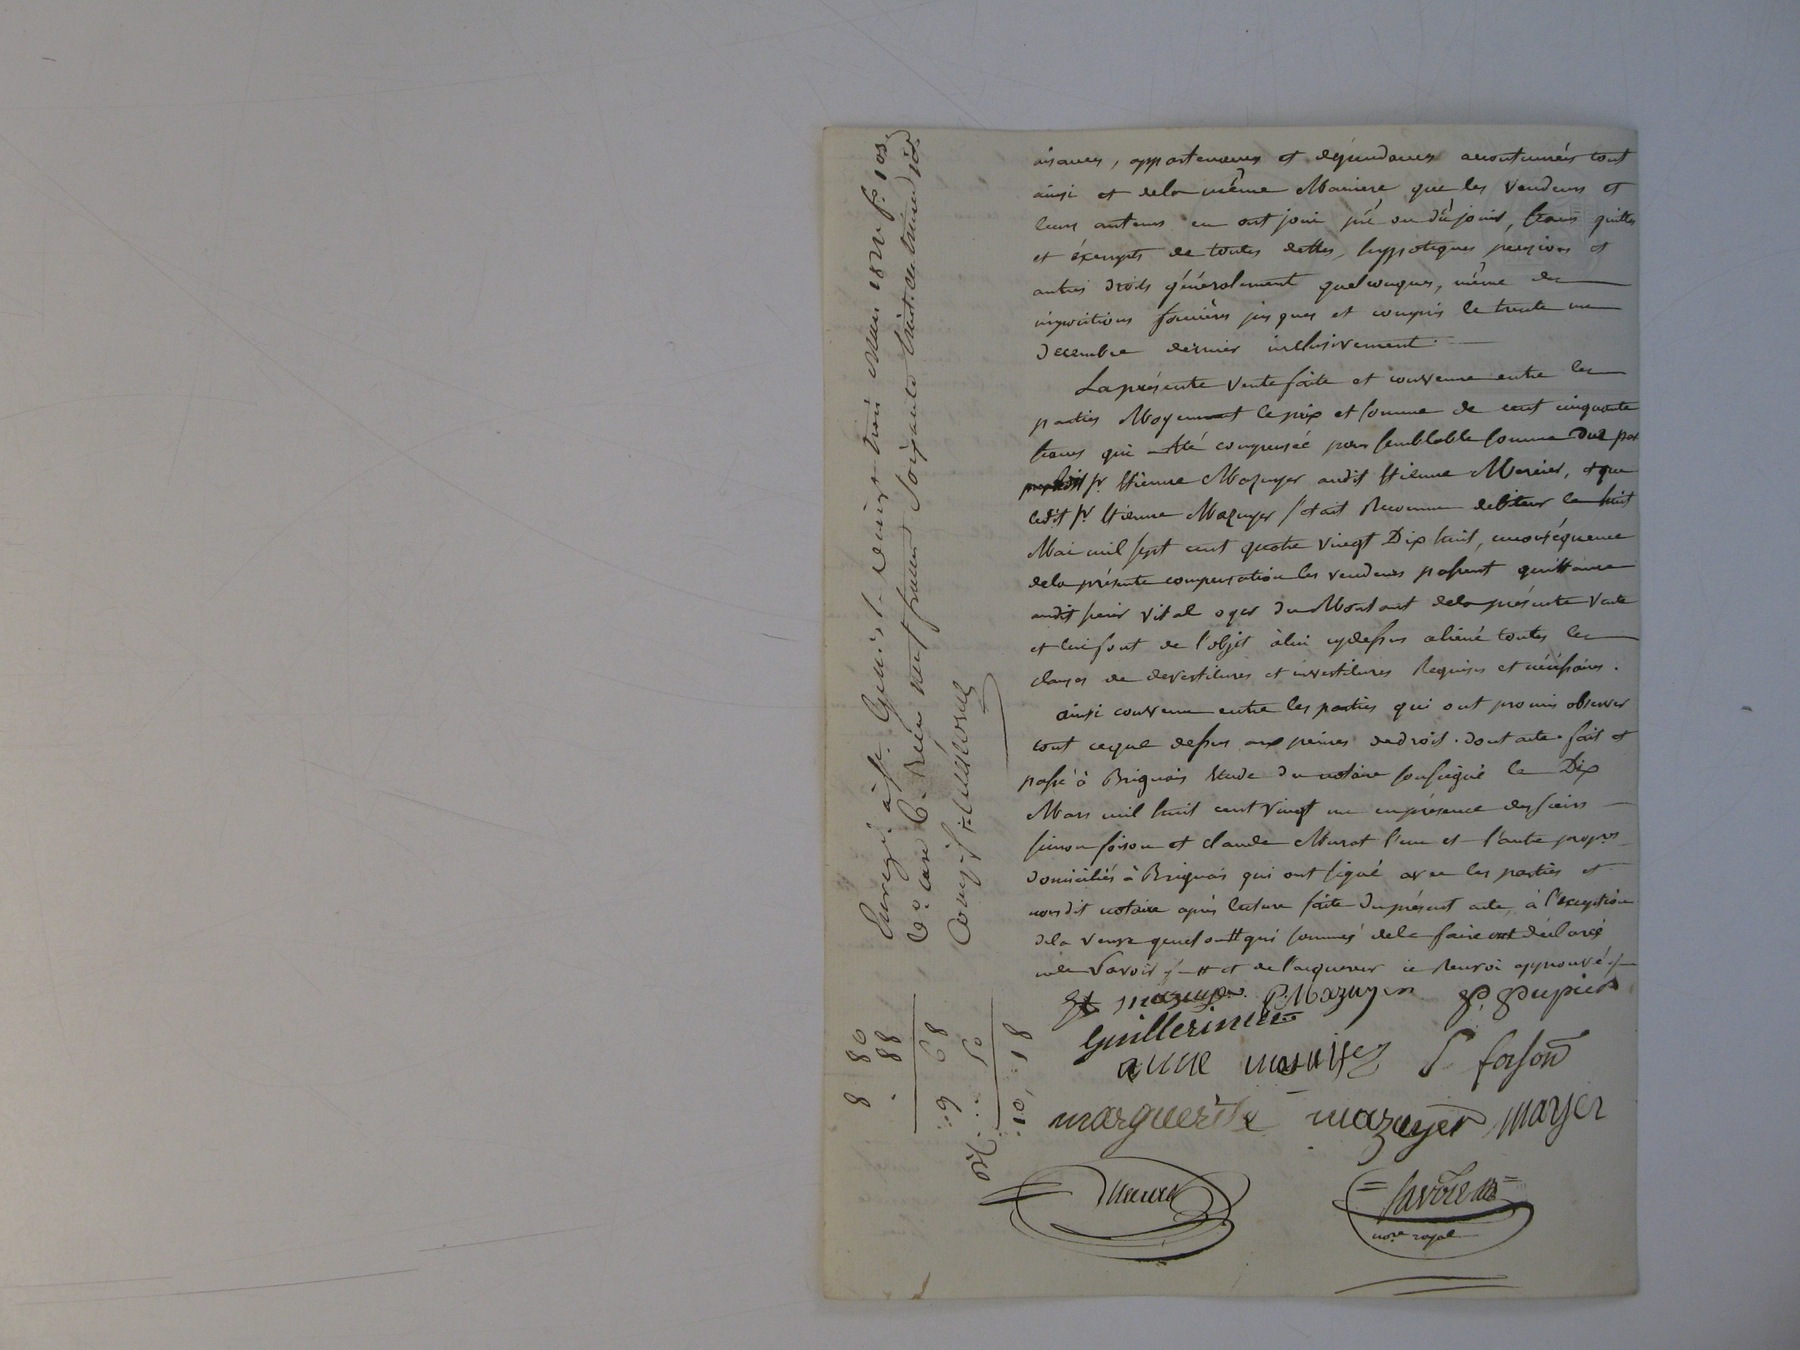 aisances, appartenances et dépendances accoutumées tout
ainsi et dela même Maniere que les vendeurs et
leurs auteurs en ont joui pû ou dû jouir, francs quittes
et éxempts de toutes dettes, hyppoteques pensions et
autres droits généralement quelconques, même des
impositions foncières jusques et compris le trente un
Decembre dernier inclusivement.
La présente Vente faite et convenue entre les
parties Moyennant le prix et somme de cent cinquante
francs qui a été compensée pour semblable somme due par
Sr. Etienne Mazuyer audit Etienne Mercier, et que
ledit Sr Etienne Mazuyer s'était Reconnu debiteur le huit
Mai mil sept cent quatre vingt Dix huit, en conséquence
dela présente compensation les vendeurs passent quittance
audit sieur Vital oger du Montant dela présente Vente
et lui font de l'objet à lui cydessus aliéné toutes les
clauses de devestitures et investitures Requises et nécessaires.
ainsi convenu entre les parties qui ont promis observer
tout ceque dessus aux peines dedroit. dont acte fait et
passé à Brignais Etude du notaire soussigné le Dix
Mars mil huit cent vingt un en présence des sieurs
simon foison et claude Murat l'un et l'autre propres
domiciliés à Brignais qui ont signé avec les parties et
nousdit notaire après lecture faite du présent acte, à l'exception
dela veuve qui sommés dele faire ont déclaré
nele Savoir et de l'acquereur ce Renvoi approuvé
mazuyer P. Mazuyer P. Pupier
Guillermin
anne S. foison
marguerite mazuyer Mayer
Murat
not.re royal
Enregé à St. Genis le vingt trois Mars 1821 f.o 108
V.o case 6. Reçu neuf francs soixante huit centimes
8 80
. 88
9 68
50
10, 18